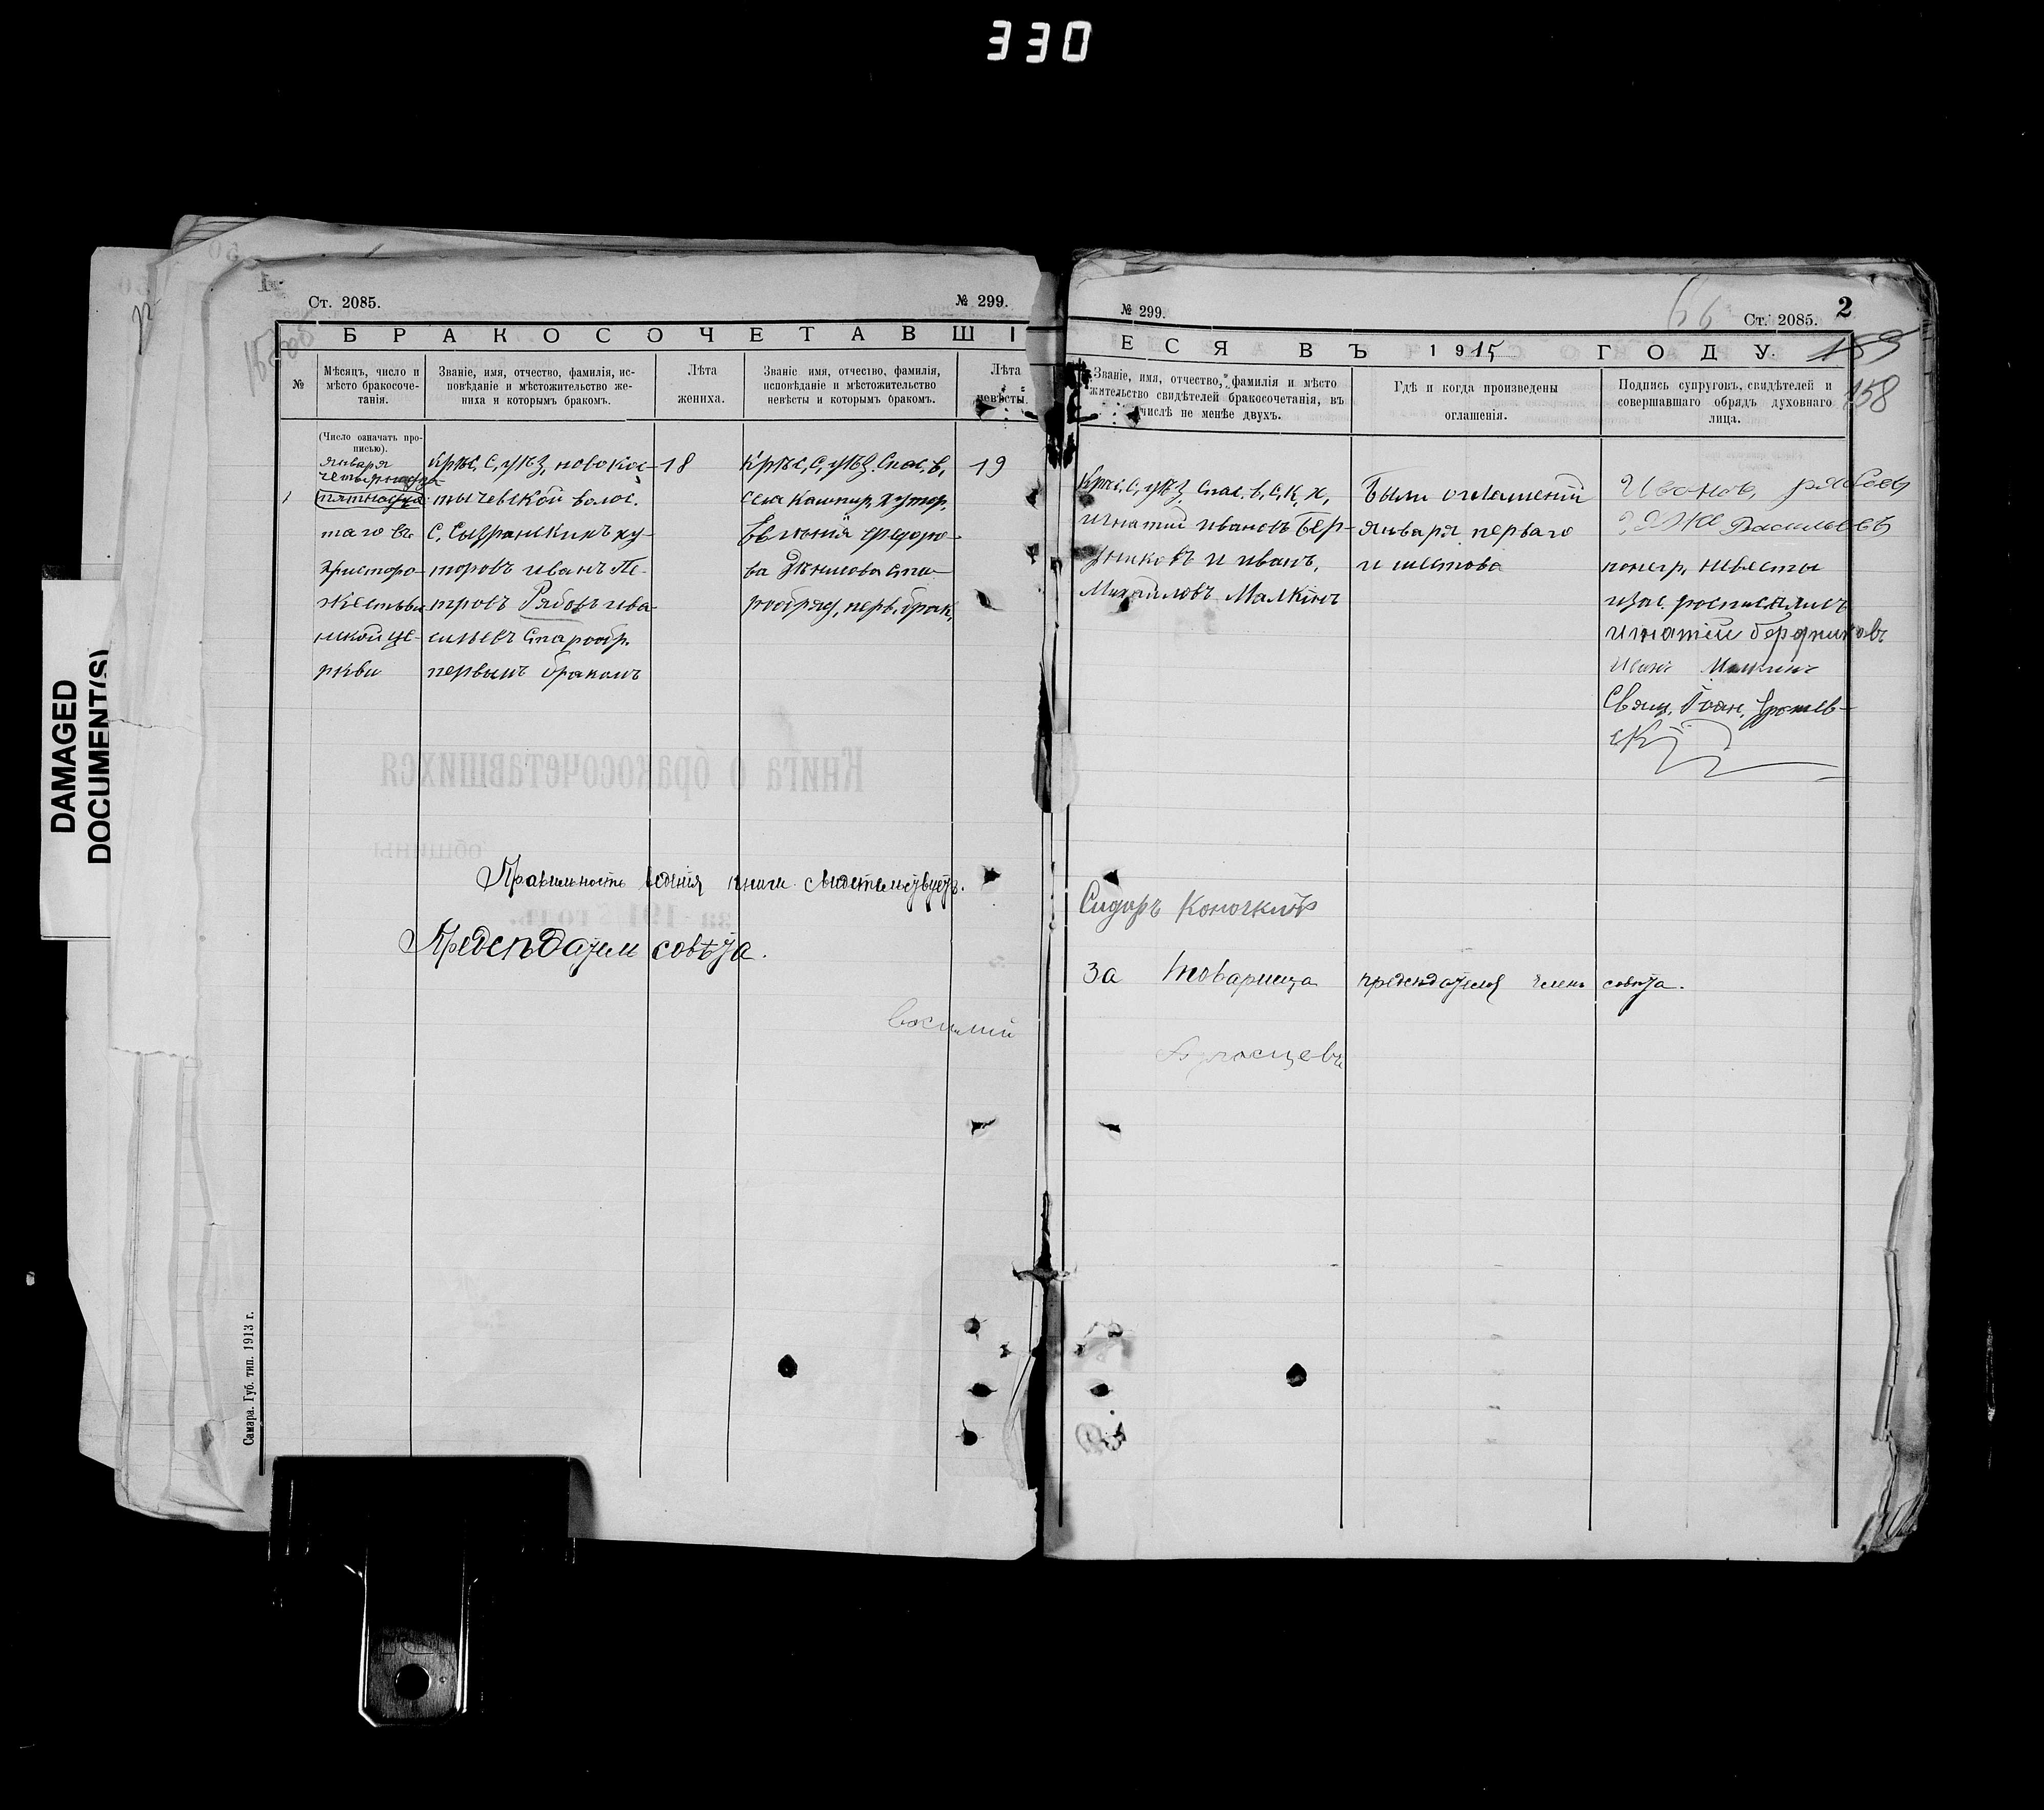 330
DAMAGED
DOCUMENT(S)
Ст. 2085.
№ 299.
БРАКОСОЧЕТАВШІ
№
Мѣсяцъ, число и
мѣсто бракосоче-
танія.
Званіе, имя, отчество, фамилія, ис-
повѣданіе и мѣстожительство же-
ниха и которымъ бракомъ.
Лѣта
жениха.
Званіе имя, отчество, фамилія,
исповѣданіе и мѣстожительство
невѣсты и которымъ бракомъ.
Лѣта
невѣсты.
(Число означать про-
писью).
января
1
таго въ
христоро-
жеств
ской це-
ркви
Крѣс, С, уѣз, новокос-
тычевской волос.
С, Сызранскихъ ху-
торовъ иванъ Пе-
тровъ Рябовъ
старообр.
первымъ бракомъ
18
Крѣс, С, уѣз, Спас, в,
села Кашпир. хутор.
Евгенія Федоро-
ва Денисова Ста-
рообряд, перв. брак,
19
Правильность веденія книги свидетельствуетъ.
Председатель совѣта.
василий
Книга о бракосочетавшихся
общины
Самара. Губ. тип. 1913 г.
№ 299.
66
Ст. 2085.
2
ЕСЯ ВЪ 1915 ГОДУ.
159
158
Званіе, имя, отчество, фамилія и мѣсто
жительство свидѣтелей бракосочетанія, въ
числѣ не менѣе двухъ.
Гдѣ и когда произведены
оглашенія.
Подпись супруговъ, свидѣтелей и
совершавшаго обрядъ духовнаго
лица.
Крѣс, С, уѣз, Спас. в, С, К, х,
игнатий ивановъ Бер-
дниковъ и иванъ,
Михайловъ Малкинъ
Были оглашений
января перваго
и шестова
Васильевъ
негр, невесты
росписались
игнатий бердниковъ
иванъ Малкинъ
Свящ. Іоан.
Сидоръ Коночкинъ
За товарища председателя членъ совѣта.